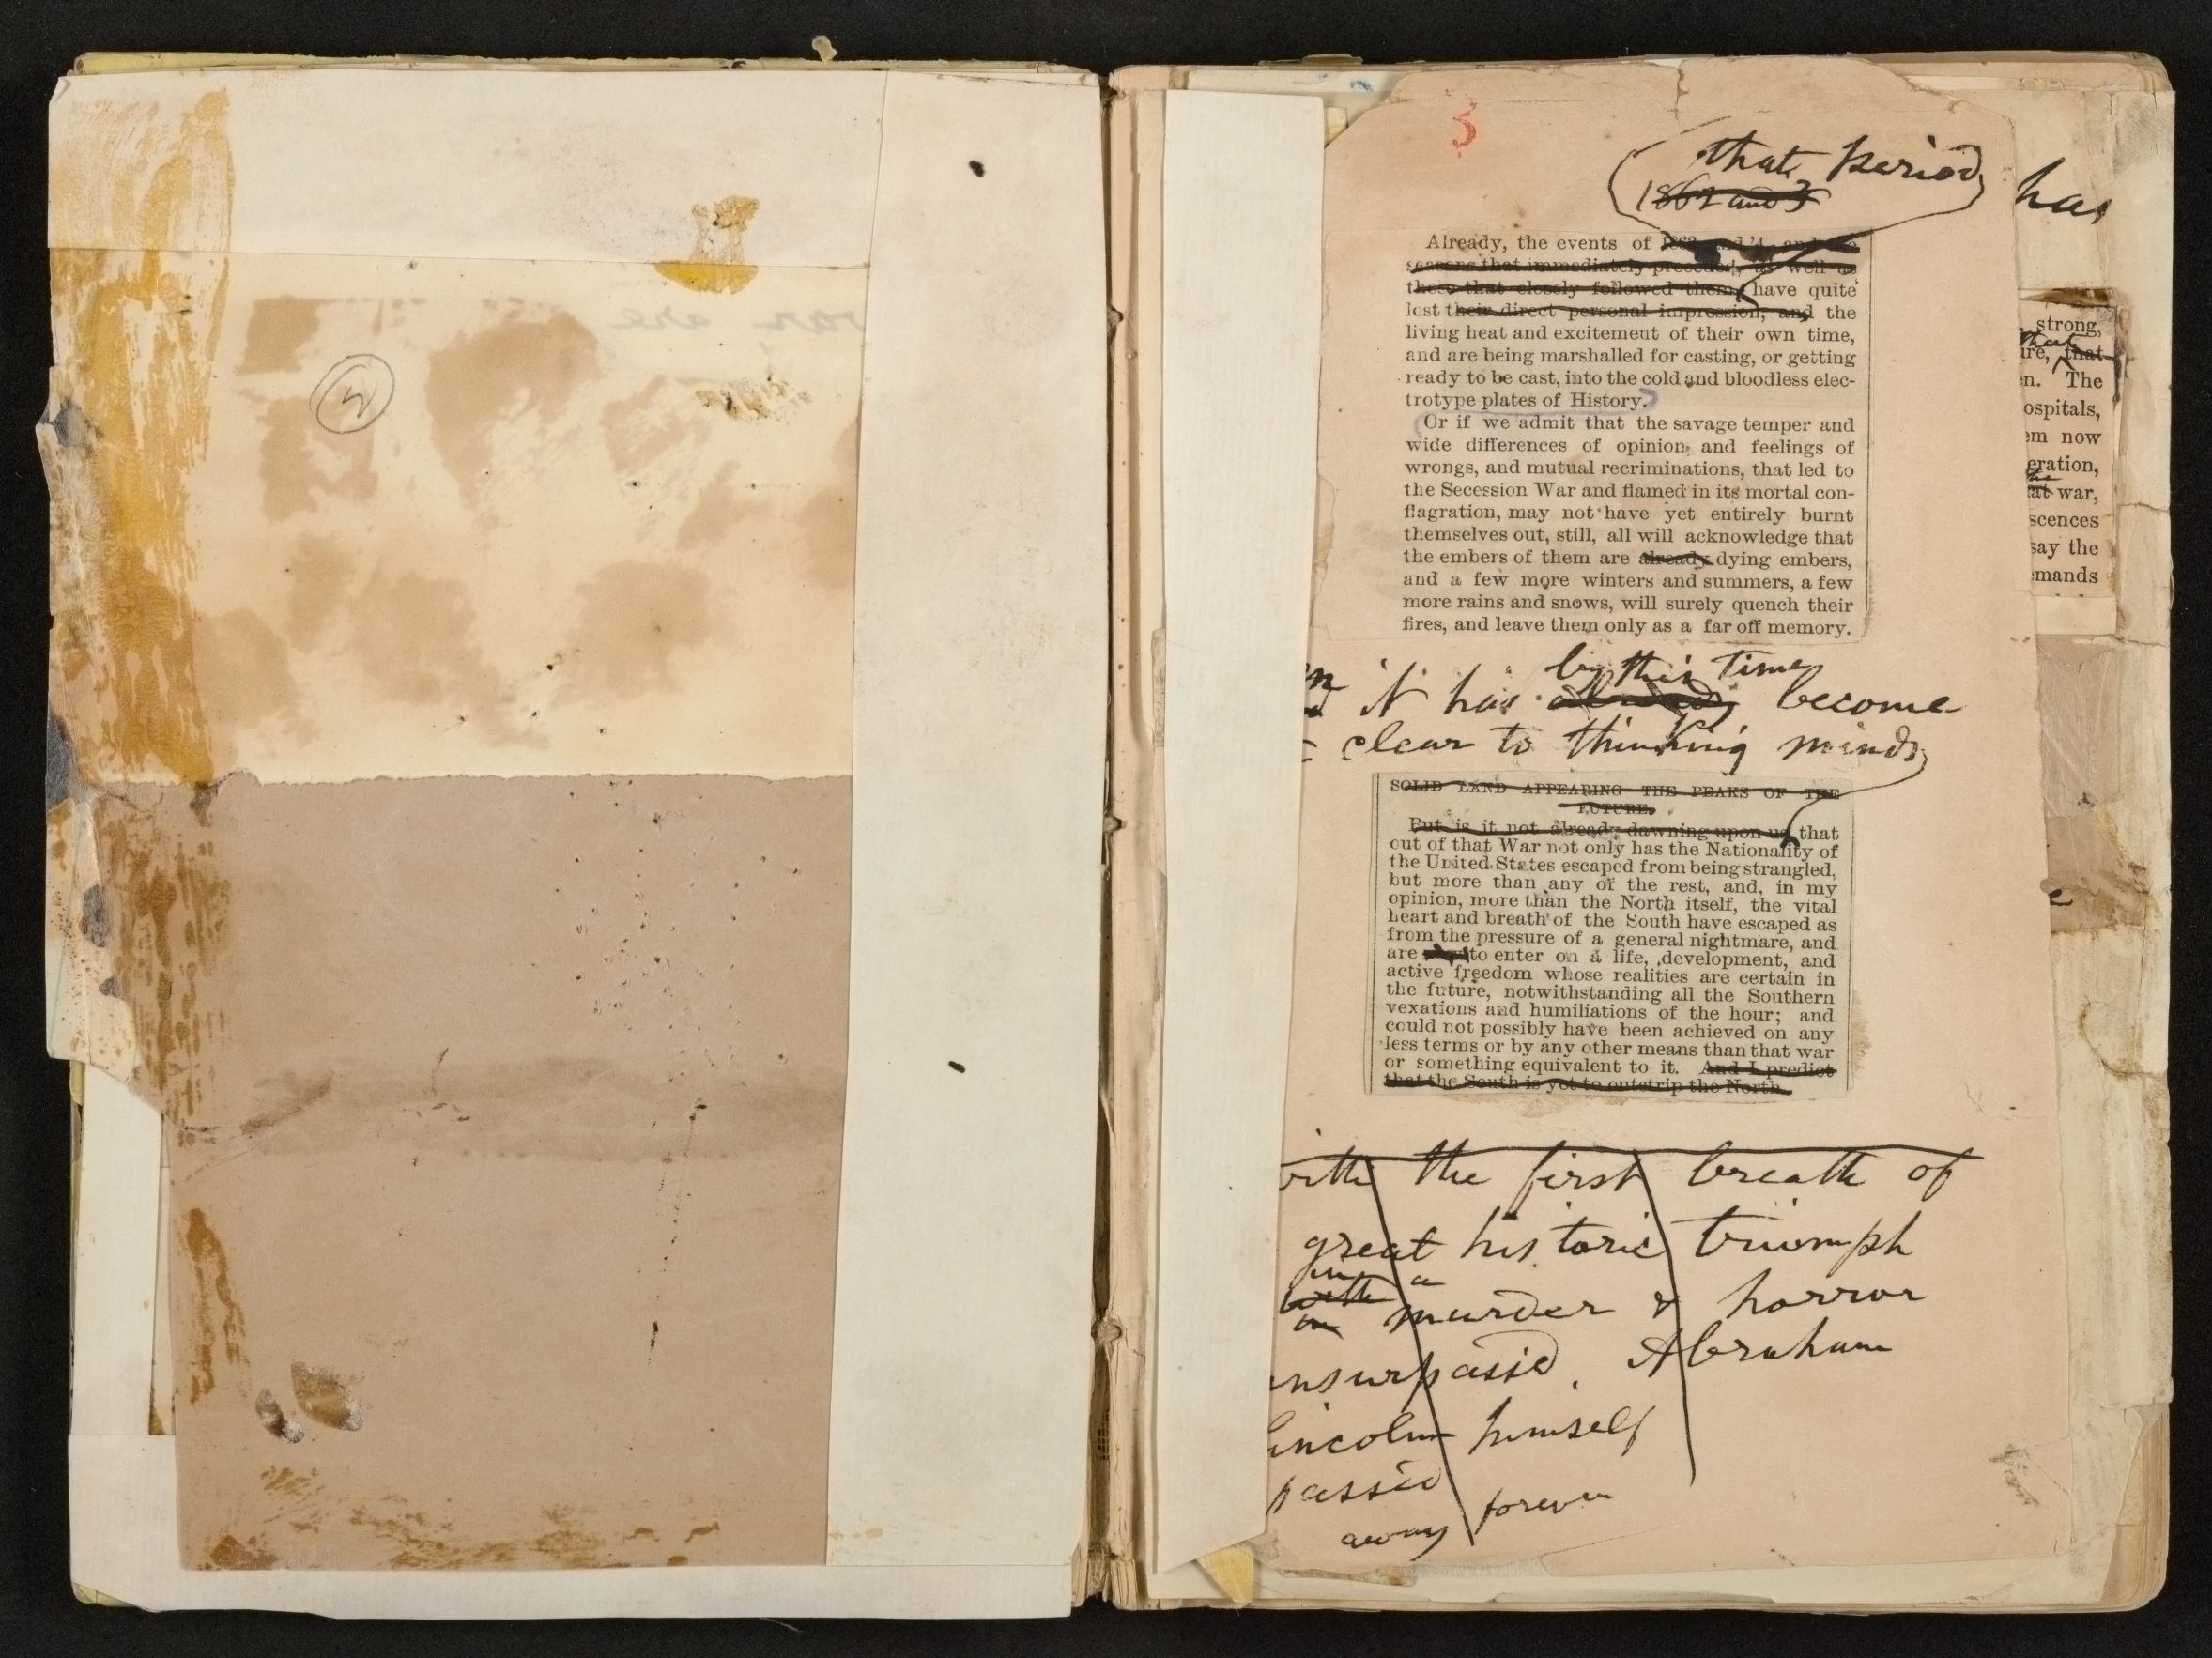 3
that period
1862 and 3
has
Already, the events of 1863 and '4, and the
seasons that immediately preceded, as well as
those that closely followed them, have quite
lost their direct personal impression, and the
living heat and excitement of their own time,
and are being marshalled for casting, or getting
ready to be cast, into the cold and bloodless elec-
trotype plates of History.
Or if we admit that the savage temper and
wide differences of opinion and feelings of
wrongs, and mutual recriminations, that led to
the Secession War and flamed in its mortal con-
flagration, may not have yet entirely burnt
themselves out, still, all will acknowledge that
the embers of them are already dying embers,
and a few more winters and summers, a few
more rains and snows, will surely quench their
fires, and leave them only as a far off memory.
by this time
it has already become
clear to thinking minds
SOLID LAND APPEARING THE PEAKS OF THE
FUTURE.
But is it not already dawning upon us that
out of that War not only has the Nationality of
the United States escaped from being strangled,
but more than any of the rest, and, in my
opinion, more than the North itself, the vital
heart and breath of the South have escaped as
from the pressure of a general nightmare, and
are to enter on a life, development, and
active freedom whose realities are certain in
the future, notwithstanding all the Southern
vexations and humiliations of the hour; and
could not possibly have been achieved on any
less terms or by any other means than that war
or something equivalent to it. And I predict
that the South is yet to outstrip the North.
with the first breath of
great historic triumph
in a
with murder & horror
unsurpassed. Abraham
Lincoln himself
passed
away forever
strong,
that
ure, that
en. The
ospitals,
em now
eration,
the
at war,
scences
say the
emands
e